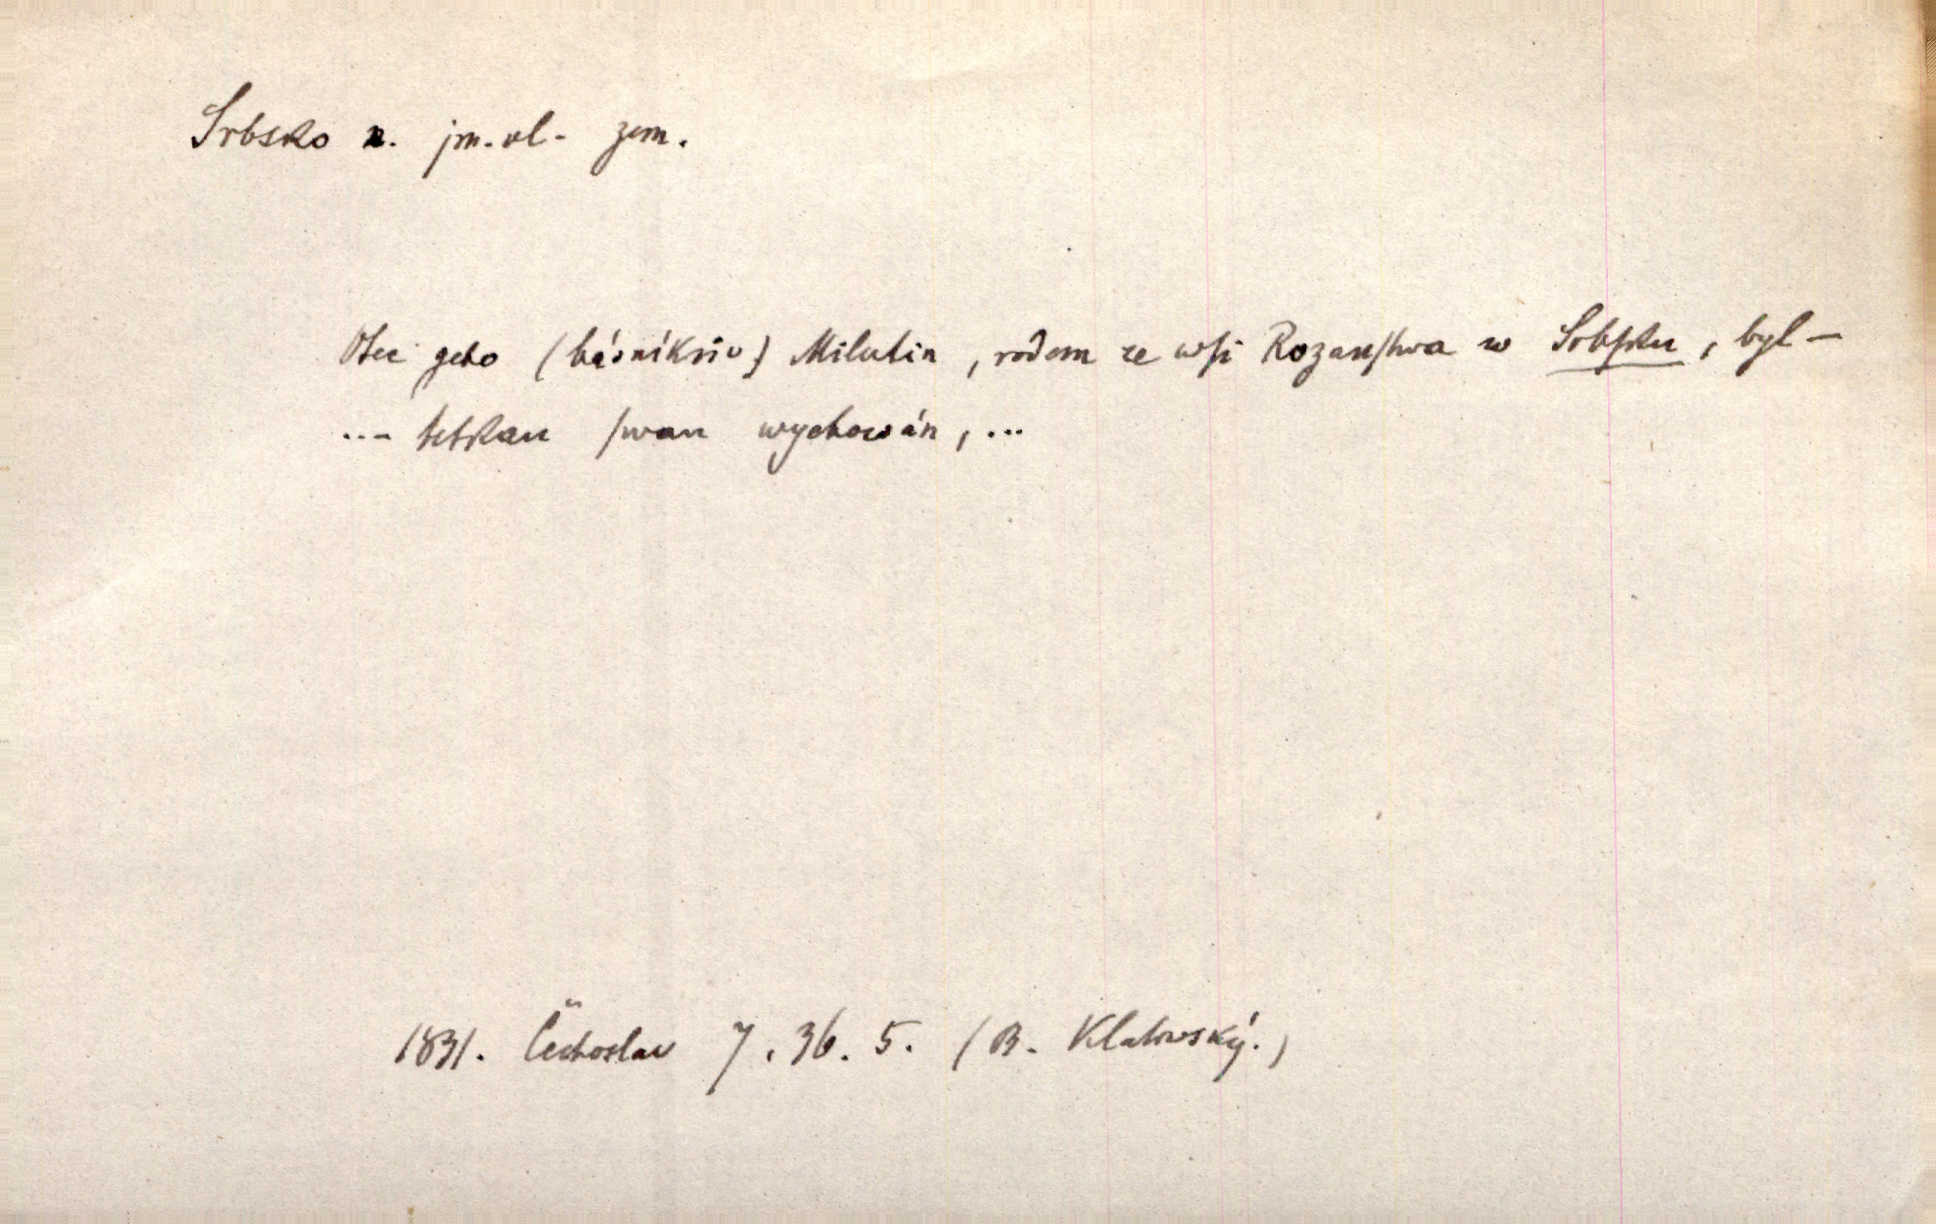 Srbsko n. jm. vl. zem.
Otec geho (básníkův) Milutin, rodem ze wſi Rozanſtwa w Srbſku, byl –
... tetkau ſwau wychowán, ...
1831. Čechoslav 7. 36. 5. (B. Klatowský.)